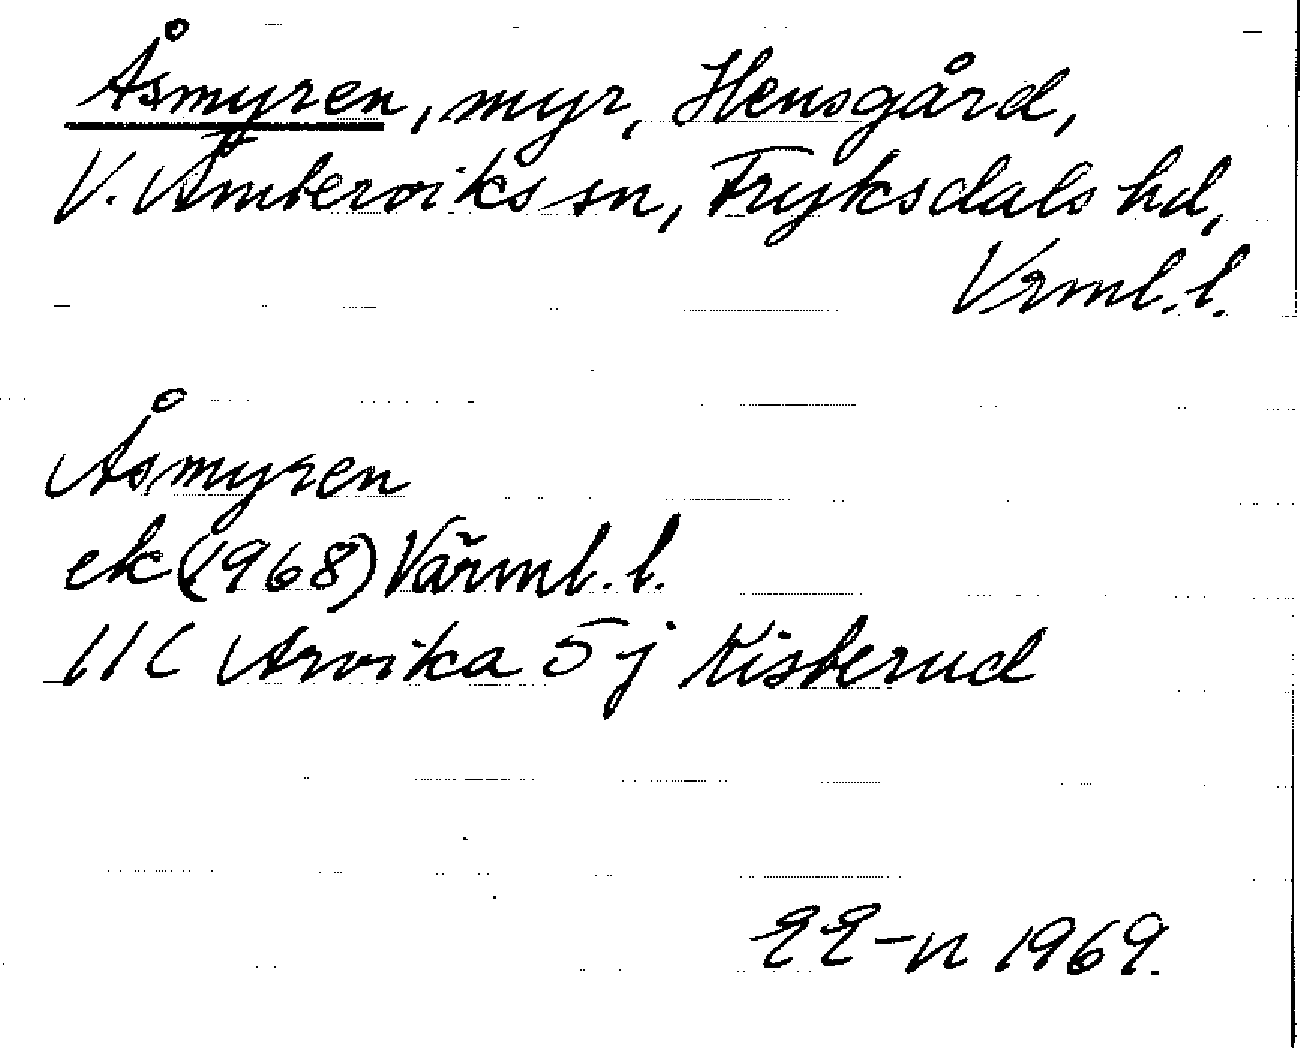 Åsmyren, myr, Hensgård,
V. Ämterviks sn, Fryksdals hd,
Vrml. l.
Åsmyren
ek (1968) Värml. l.
11C Arvika 5j Kisterud
EE-n 1969.